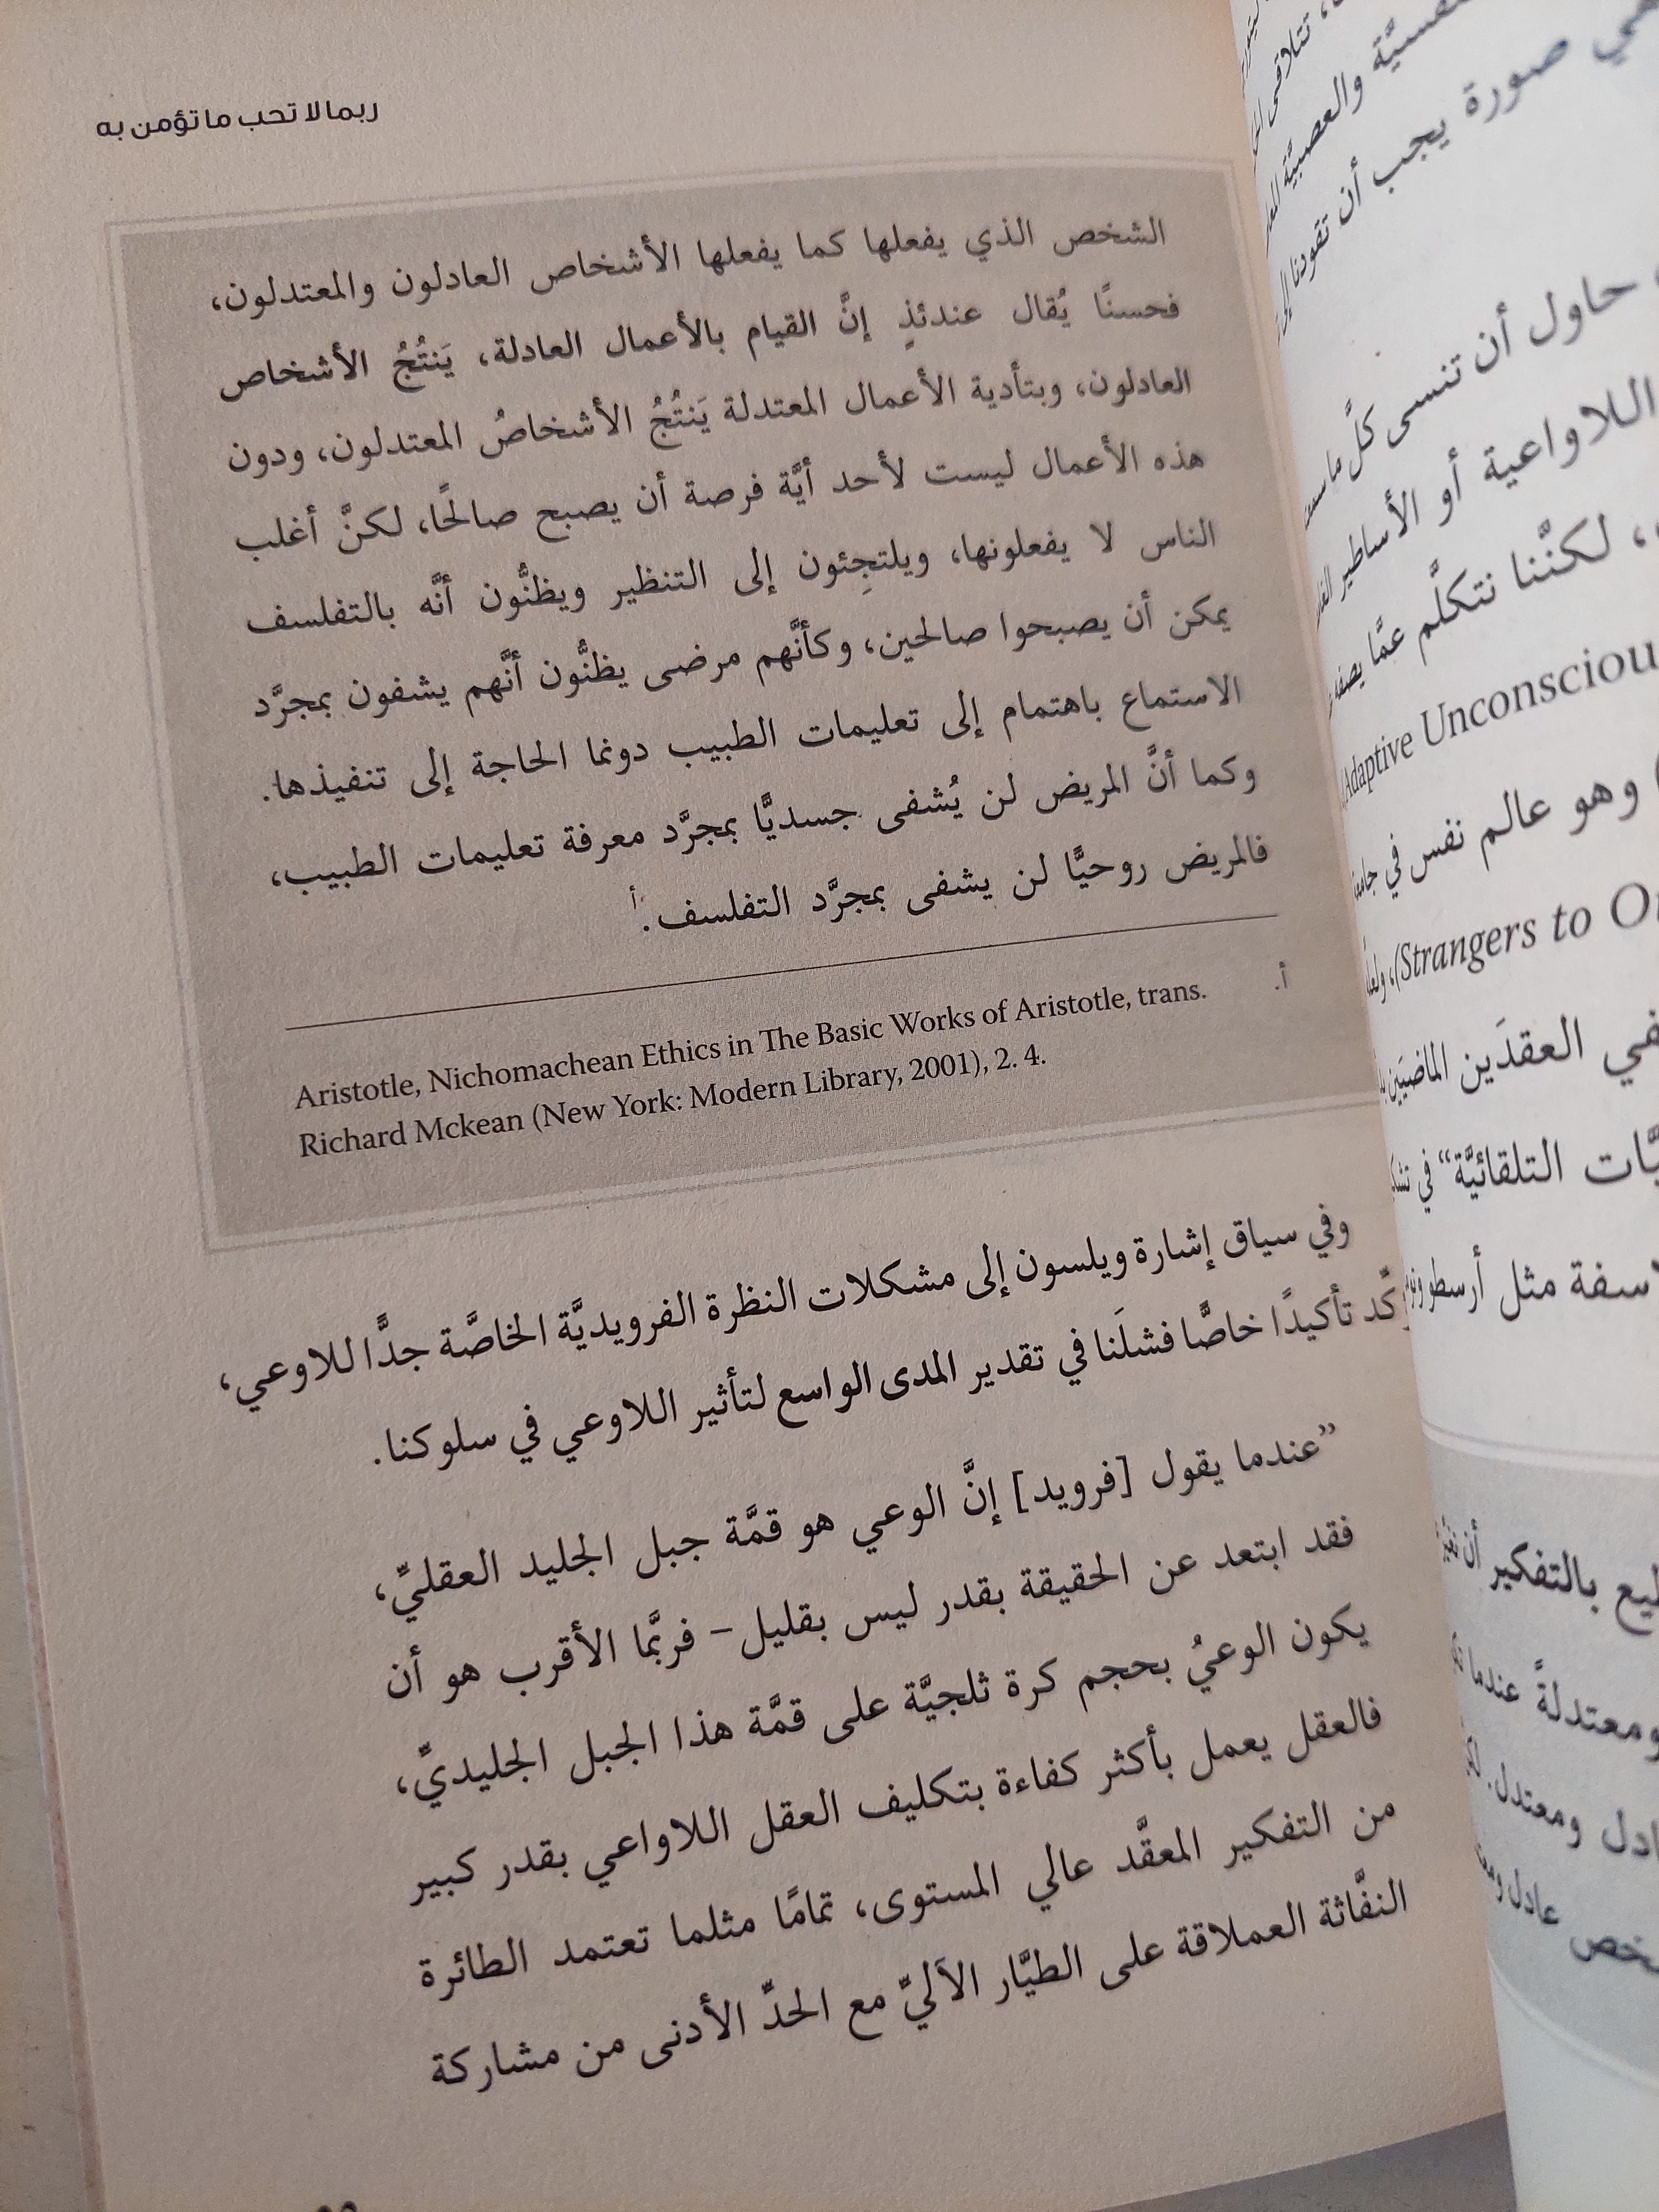 ربما لا تحب ما تؤمن به
الشخص الذي يفعلها كما يفعلها الأشخاص العادلون والمعتدلون،
فحسنًا يُقال عندئذٍ إنَّ القيام بالأعمال العادلة، يَنتُجُ الأشخاص
العادلون، وبتأدية الأعمال المعتدلة يَنتُجُ الأشخاصُ المعتدلون، ودون
هذه الأعمال ليست لأحد أيَّة فرصة أن يصبح صالحًا، لكنَّ أغلب
الناس لا يفعلونها، ويلتجِئون إلى التنظير ويظنُّون أنَّه بالتفلسف
يمكن أن يصبحوا صالحين، وكأنَّهم مرضى يظنُّون أنَّهم يشفون بمجرَّد
الاستماع باهتمام إلى تعليمات الطبيب دونما الحاجة إلى تنفيذها.
وكما أنَّ المريض لن يُشفى جسديًّا بمجرَّد معرفة تعليمات الطبيب،
فالمريض روحيًّا لن يشفى بمجرَّد التفلسف.أ
أ.
Aristotle, Nichomachean Ethics in The Basic Works of Aristotle, trans.
Richard Mckean (New York: Modern Library, 2001), 2. 4.
وفي سياق إشارة ويلسون إلى مشكلات النظرة الفرويديَّة الخاصَّة جدًّا للاوعي،
تأكيدًا خاصًّا فشلَنا في تقدير المدى الواسع لتأثير اللاوعي في سلوكنا.
”عندما يقول [فرويد] إنَّ الوعي هو قمَّة جبل الجليد العقليِّ،
فقد ابتعد عن الحقيقة بقدر ليس بقليل– فربَّما الأقرب هو أن
يكون الوعيُ بحجم كرة ثلجيَّة على قمَّة هذا الجبل الجليديِّ،
فالعقل يعمل بأكثر كفاءة بتكليف العقل اللاواعي بقدر كبير
من التفكير المعقَّد عالي المستوى، تمامًا مثلما تعتمد الطائرة
النفَّاثة العملاقة على الطيَّار الآليِّ مع الحدِّ الأدنى من مشاركة
تتلاقى
والعصبيَّة
صورة يجب أن تقودنا إلى
حاول أن تنسى كلَّ ما
اللاواعية أو الأساطير
، لكنَّنا نتكلَّم عمَّا يصفه
Adaptive
وهو عالم نفس في
(Strangers to
العقدَين الماضيَين
التلقائيَّة“ في
مثل أرسطو
بالتفكير أن
ومعتدلةً عندما
ومعتدل.
عادل